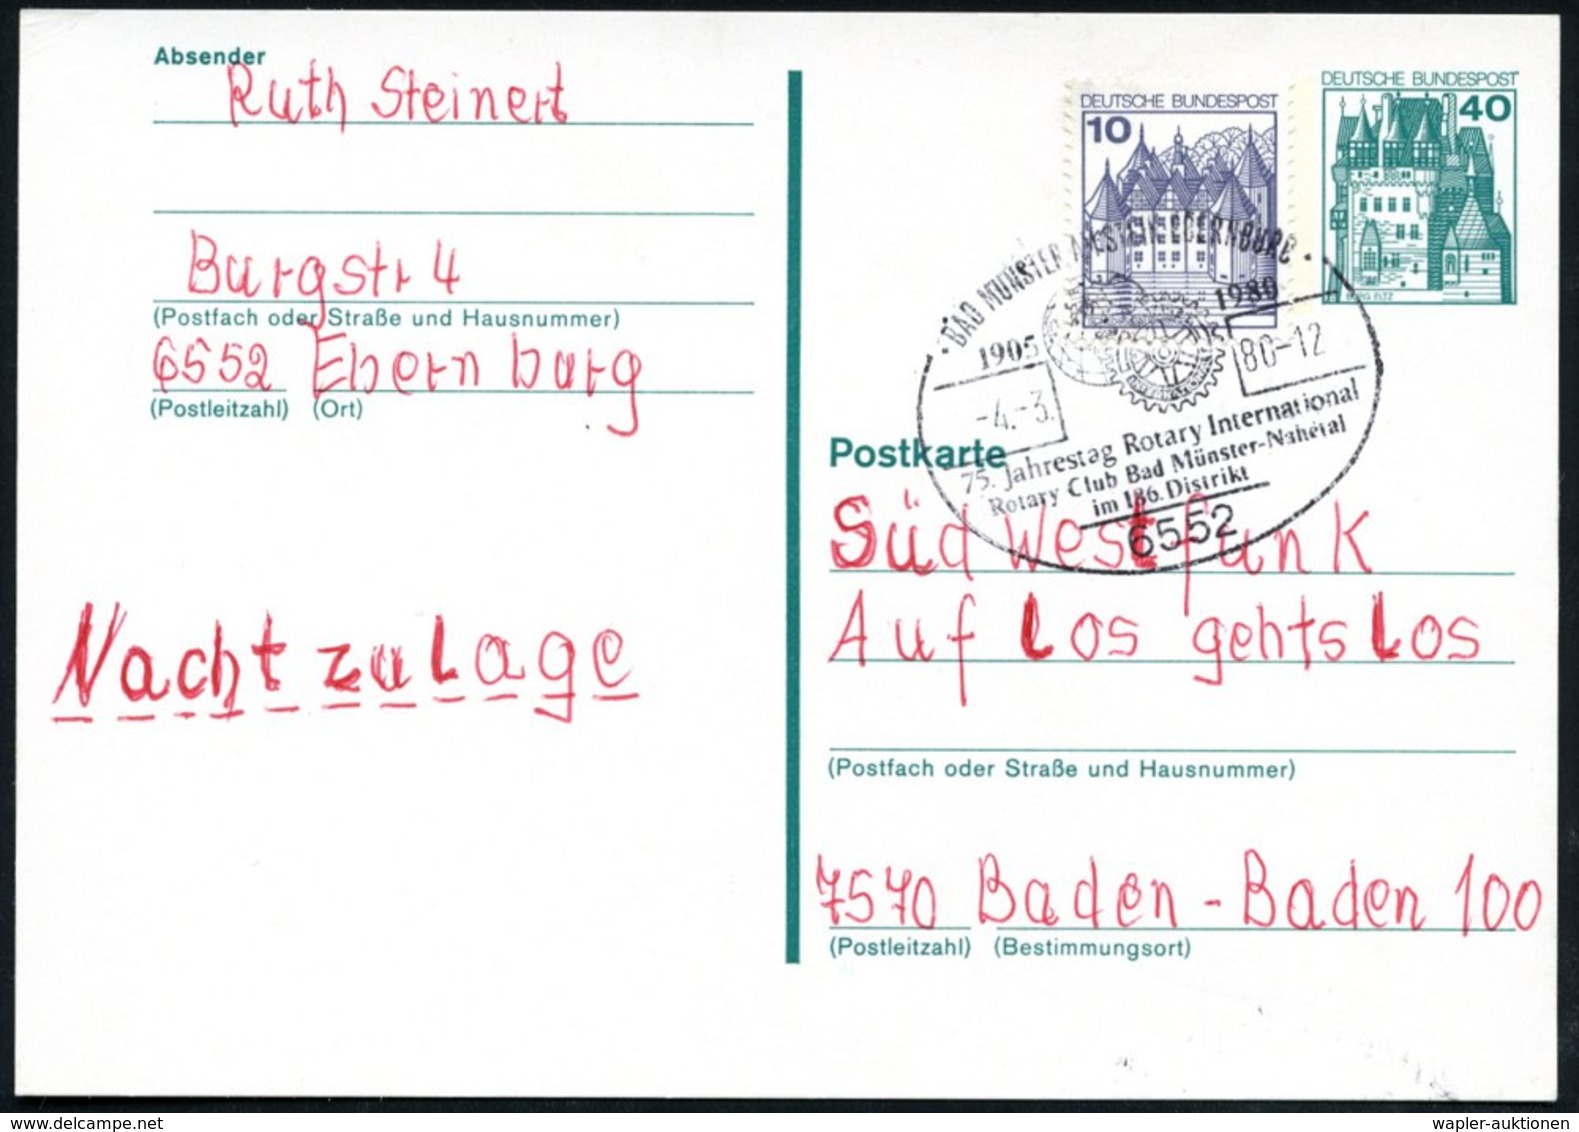 Absender
Ruth Steinert
Burgstr 4
(Postfach oder Straße und Hausnummer)
6552 Ebernburg
(Postleitzahl) (Ort)
Nachtzulage
DEUTSCHE BUNDESPOST
10
DEUTSCHE BUNDESPOST
40
BURG ELTZ
· BAD MÜNSTER A. STEIN-EBERNBURG ·
1905
1980
-4.-3.
80-12
75. Jahrestag Rotary International
Rotary Club Bad Münster-Nahetal
im 186. Distrikt
6552
Postkarte
Südwestfunk
Auf Los gehts Los
(Postfach oder Straße und Hausnummer)
7570 Baden-Baden 100
(Postleitzahl) (Bestimmungsort)
wapler-auktionen